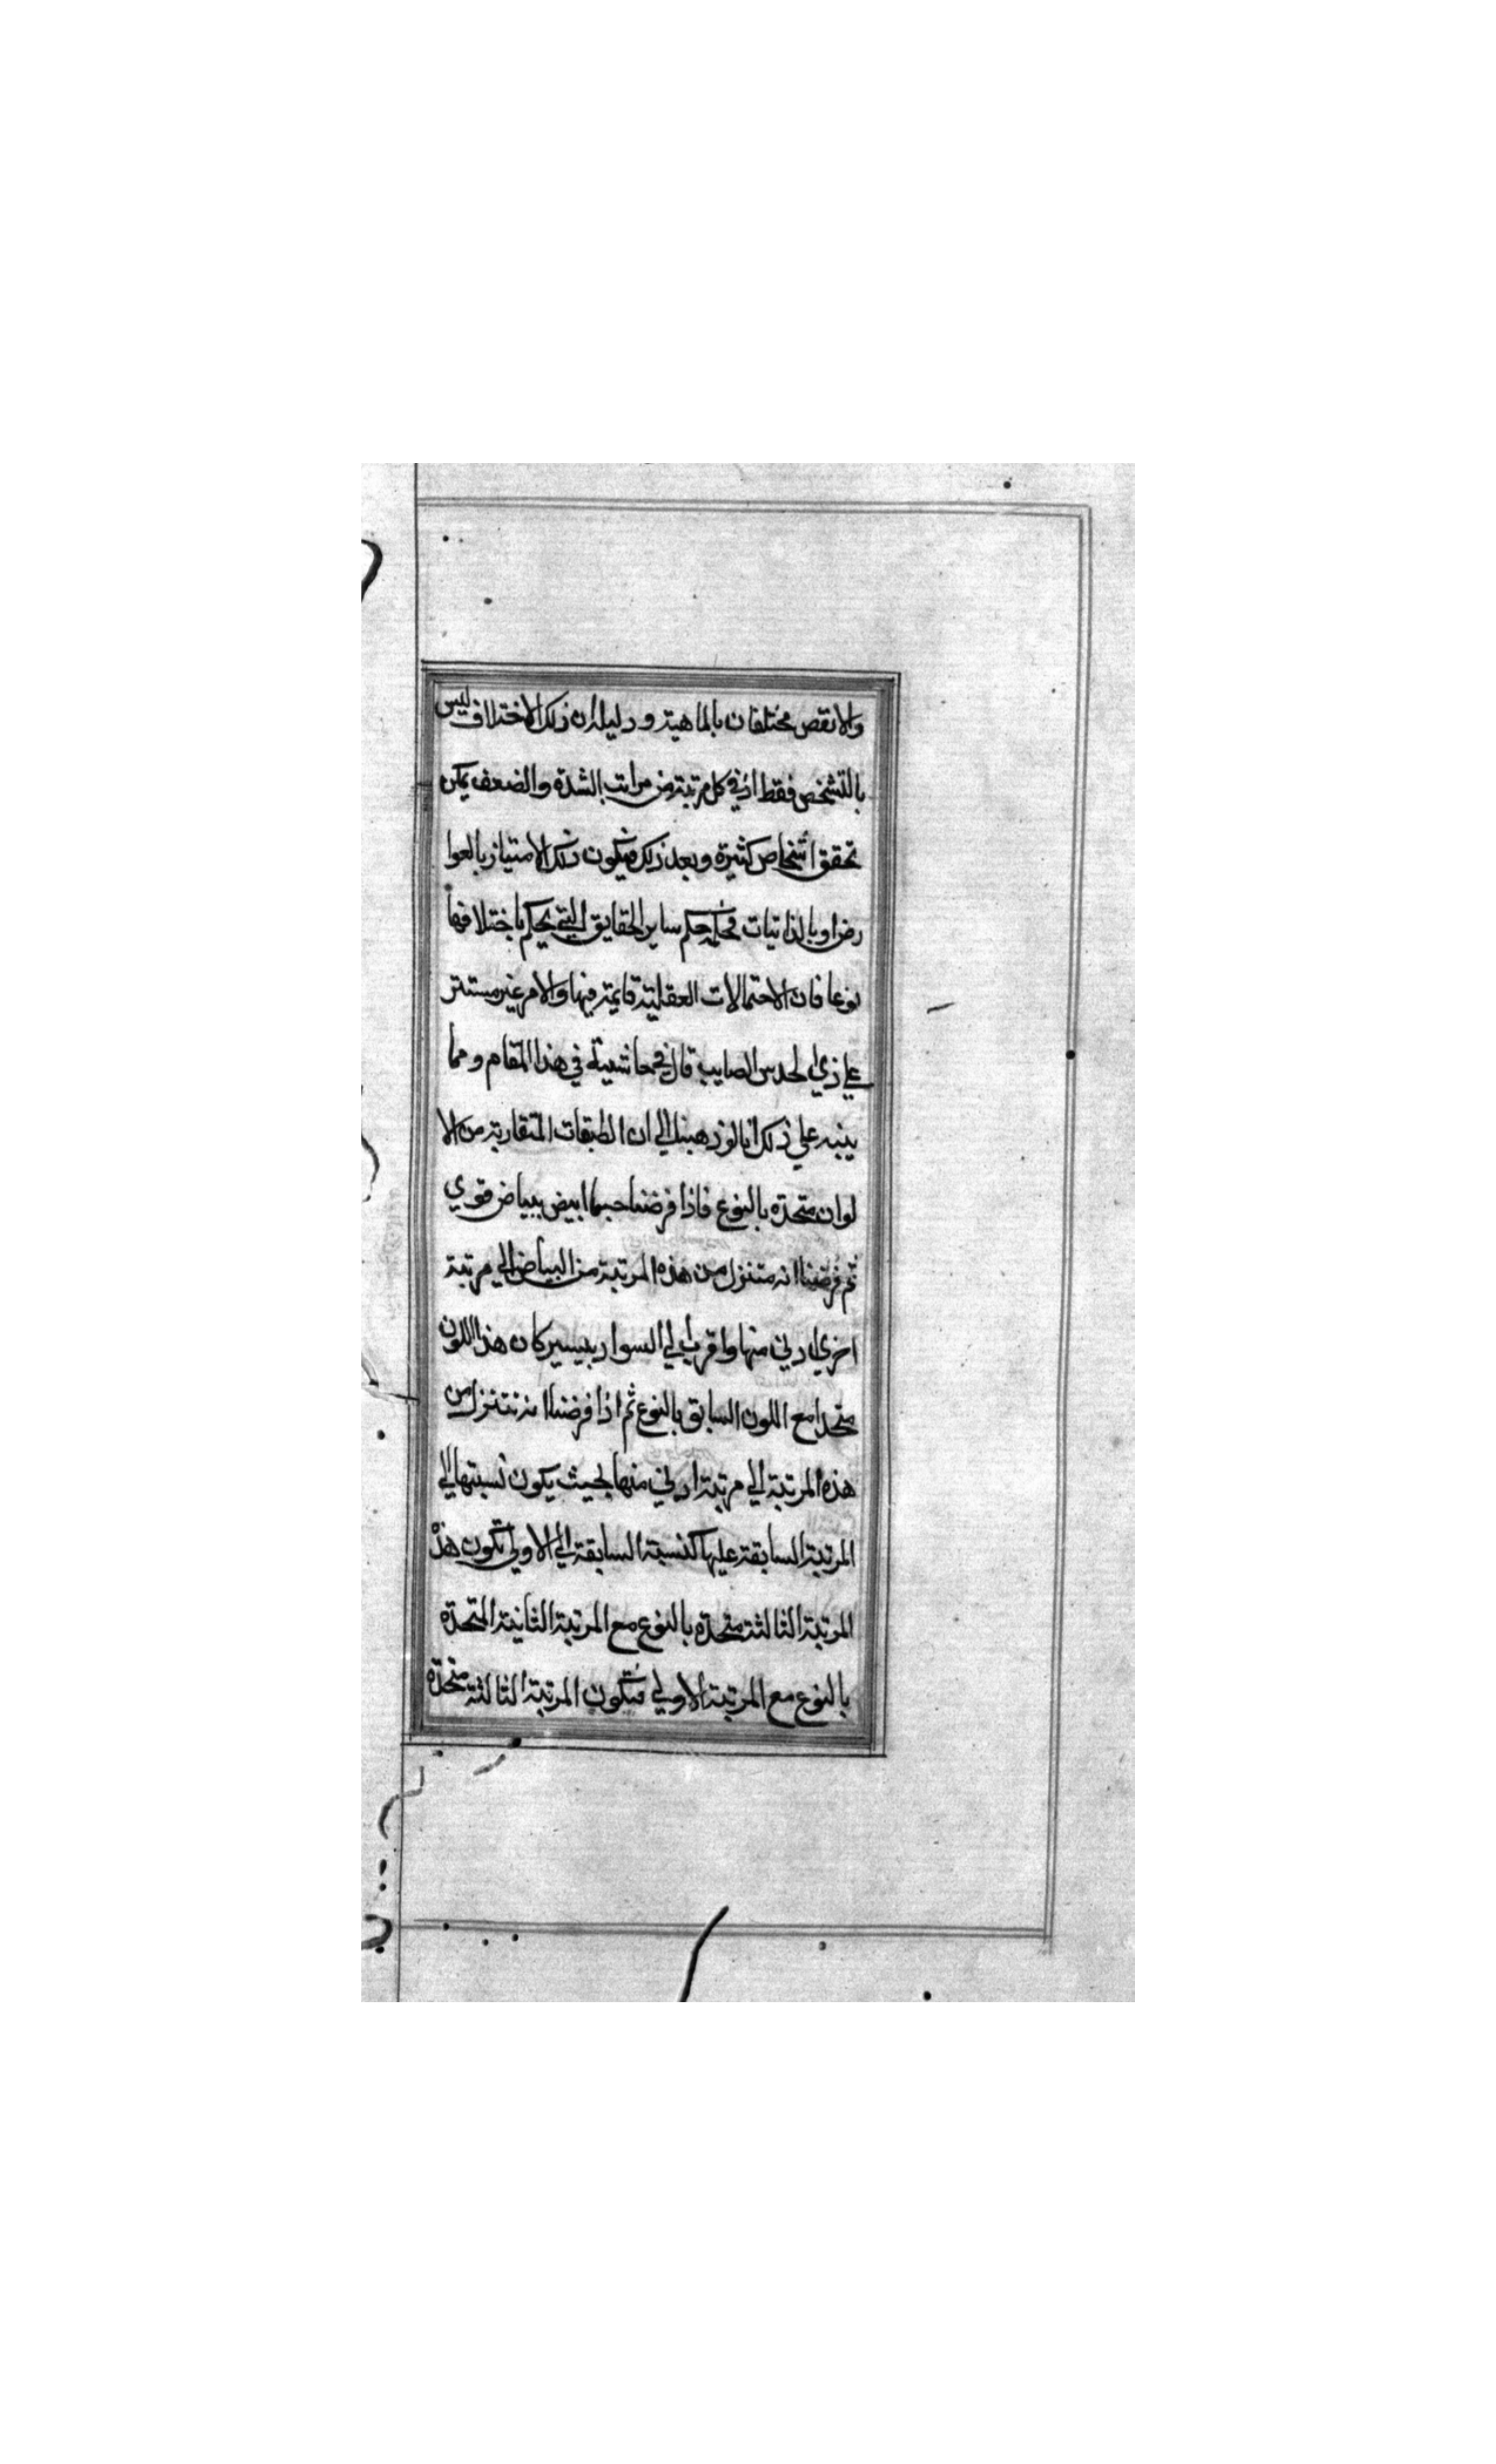 والانقص مختلفان بالماهية ودليله ان ذلك الاختلاف ليس
بالتشخص فقط اذ في كل مرتبة من مراتب الشدة والضعف يمكن
تحقق اشخاص كثيرة وبعد ذلك فيكون ذلك الامتياز بالعوا
رض او بالذاتيات فحكمه حكم ساير الحقايق التي يحكم باختلافها
نوعا فان الاحتمالات العقلية قايمة فيها والامر غير مستتر
علي ذي الحدس الصايب قال في حاشيته في هذا المقام ومما
ينبه علي ذلك انا لو ذهبنا الي ان الطبقات المتقاربة من الا
لوان متحدة بالنوع فاذا فرضنا جسما ابيض ببياض قوي
ثم فرضنا انه متنزل من هذه المرتبة من البياض الي مرتبة
اخري ادني منها واقرب الي السواد بيسير كان هذا اللون
متحدا مع اللون السابق بالنوع ثم اذا فرضنا انه تنزل من
هذه المرتبة الي مرتبة ادني منها بحيث يكون نسبتها الي
المرتبة السابقة عليها كنسبة السابقة الي الاولي تكون هذه
المرتبة الثالثة متحدة بالنوع مع المرتبة الثانية المتحدة
بالنوع مع المرتبة الاولي فتكون المرتبة الثالثة متحدة